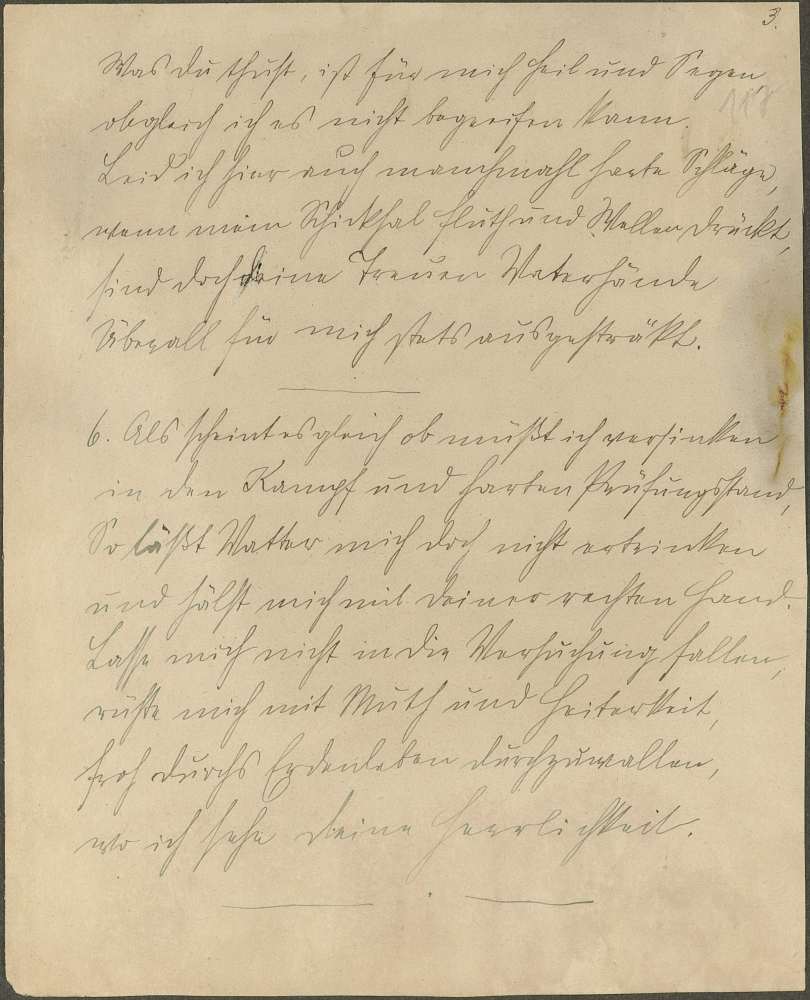 3.
Was du thust, ist für mich Heil und Segen,
obgleich ich es nicht begreifen kann.
Leid ich hier auch manchmahl harte Schläge,
wenn mein Schicksal Fluth und Wellen drückt,
sind doch deine Treuen Vaterhände
Überall für mich stets ausgesträkt.
6. Als scheint es gleich ob müßt ich versinken
in den Kampf und harten Prüfungsstand,
So läßt Vatter mich doch nicht ertrinken
und hälst mich mit deiner rechten Hand.
Lasse mich nicht in die Versuchung fallen,
rüste mich mit Muth und Heiterkeit,
froh durchs Erdenleben durchzuwallen,
wo ich sehe deine Herrlichkeit.